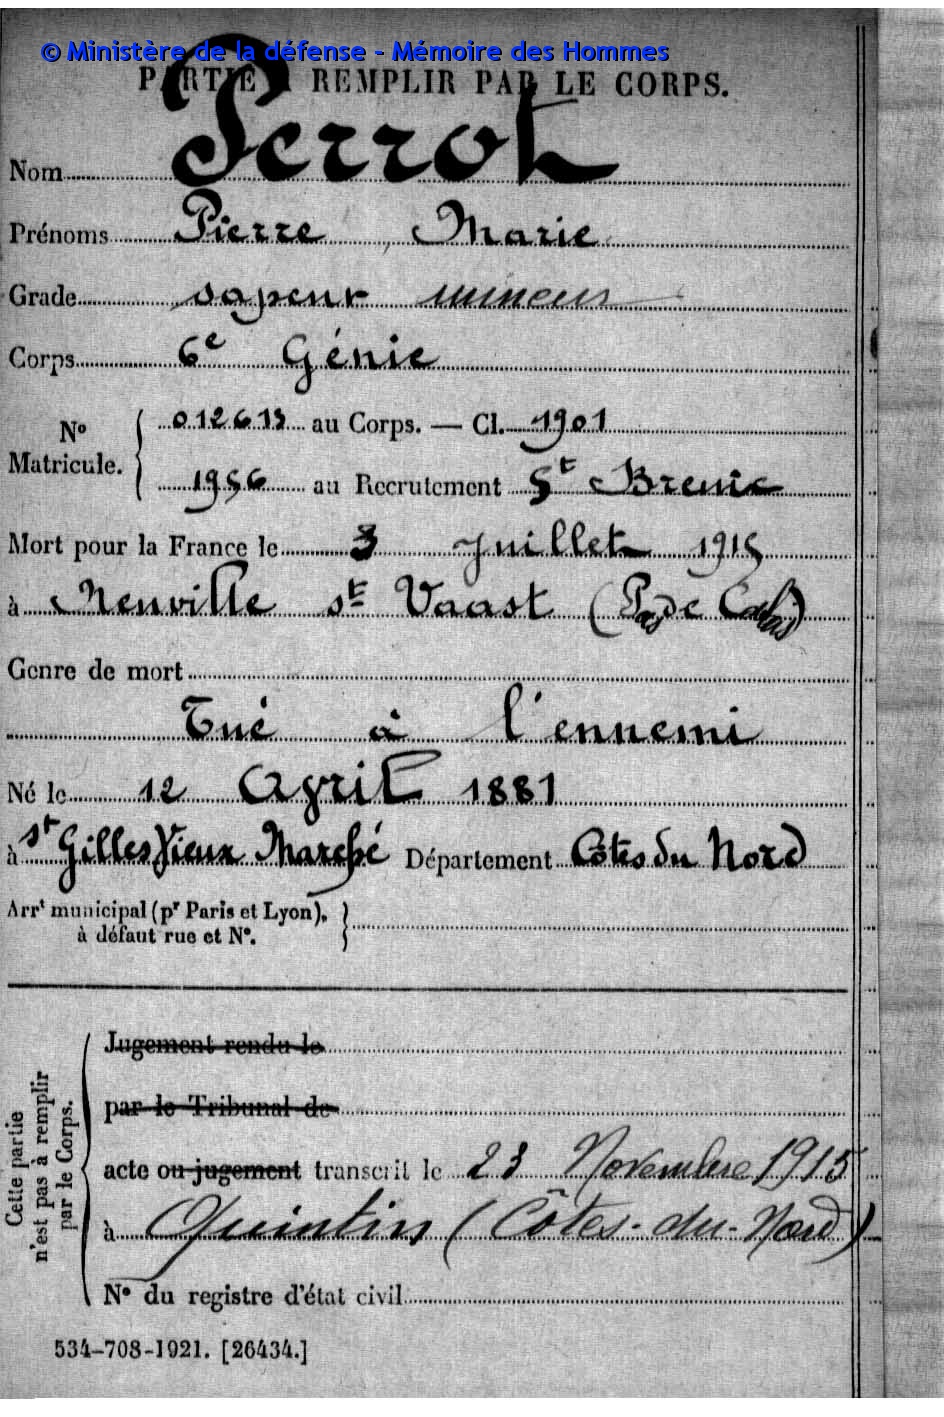 © Ministère de la défense - Mémoire des Hommes
PARTIE À REMPLIR PAR LE CORPS.
Nom Perrot
Prénoms Pierre Marie
Grade sapeur mineur
Corps 6e Génie
No Matricule. 012613 au Corps. — Cl. 1901
1956 au Recrutement St Brieuc
Mort pour la France le 3 Juillet 1915
à Neuville St Vaast (Pas de Calais)
Genre de mort
Tué à l'ennemi
Né le 12 Avril 1881
à St Gilles Vieux Marché Département Côtes du Nord
Arrt municipal (pr Paris et Lyon),
à défaut rue et No.
Cette partie
n'est pas à remplir
par le Corps.
Jugement rendu le
par le Tribunal de
acte ou jugement transcrit le 23 Novembre 1915
à Quintin (Côtes-du-Nord)
No du registre d'état civil
534-708-1921. [26434.]